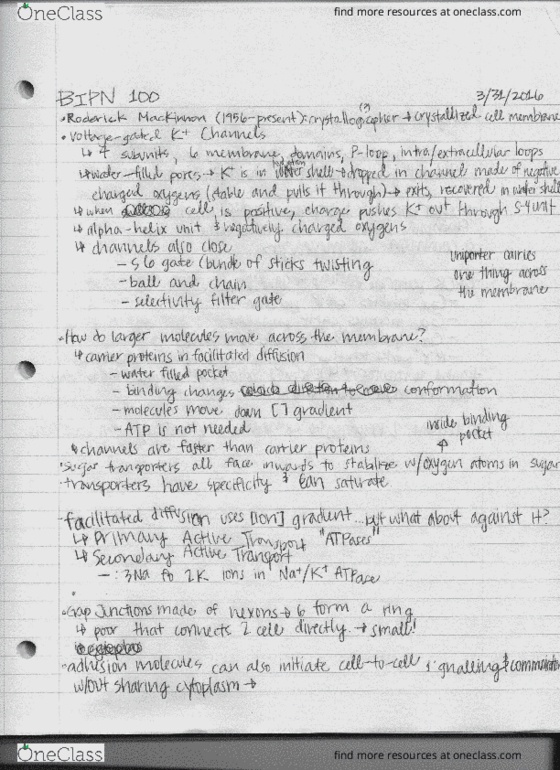 OneClass
find more resources at oneclass.com
BIPN 100
3/31/2016
• Roderick MacKinnon (1956-present): crystallographer (?) → crystallized cell membrane
• Voltage-gated K+ Channels
↳ 4 subunits, 6 membrane, domains, P-loop, intra/extracellular loops
↳ water-filled pores → K+ is in water shell → dropped in channel made of negative
charged oxygens (stable and pulls it through) → exits, recovered in water shell
↳ when cell is positive, charge pushes K+ out through S-4 unit
↳ alpha-helix unit & negatively charged oxygens
↳ channels also close
- S6 gate (bundle of sticks twisting
- ball and chain
- selectivity filter gate
Uniporter carries
one thing across
the membrane
• How do larger molecules move across the membrane?
↳ carrier proteins in facilitated diffusion
- water filled pocket
- binding changes conformation
- molecules move down [] gradient
- ATP is not needed
inside binding
pocket
↳ channels are faster than carrier proteins
• sugar transporters all face inwards to stabilize w/oxygen atoms in sugar
• transporters have specificity & can saturate
- facilitated diffusion uses [ion] gradient...but what about against it?
↳ Primary Active Transport "ATPases"
↳ Secondary Active Transport
- : 3Na to 2K ions in Na+/K+ ATPase
• Gap Junctions made of nexons → 6 form a ring
↳ poor that connects 2 cell directly. → small!
• adhesion molecules can also initiate cell-to-cell signalling &
w/out sharing cytoplasm →
OneClass
find more resources at oneclass.com